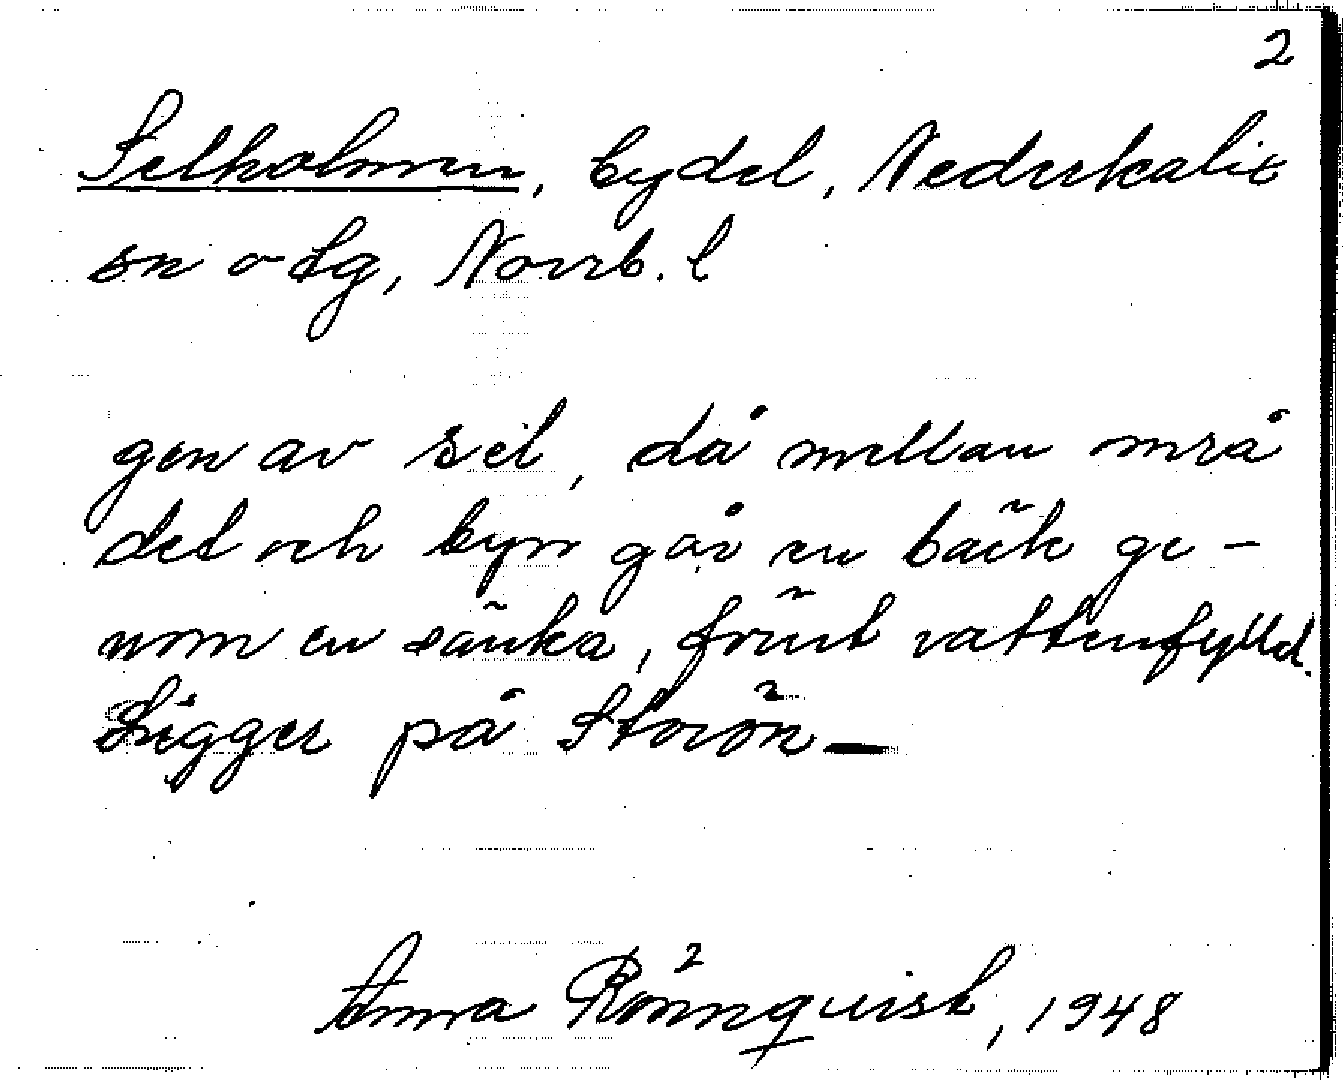 2
Selholmen, bydel, Nederkalix
sn o tg, Norrb. l
gen av sel, då mellan områ
det och byn går en bäck ge-
nom en sänka, förut vattenfylld.
Ligger på Storön
Anna Rönnquist, 1948